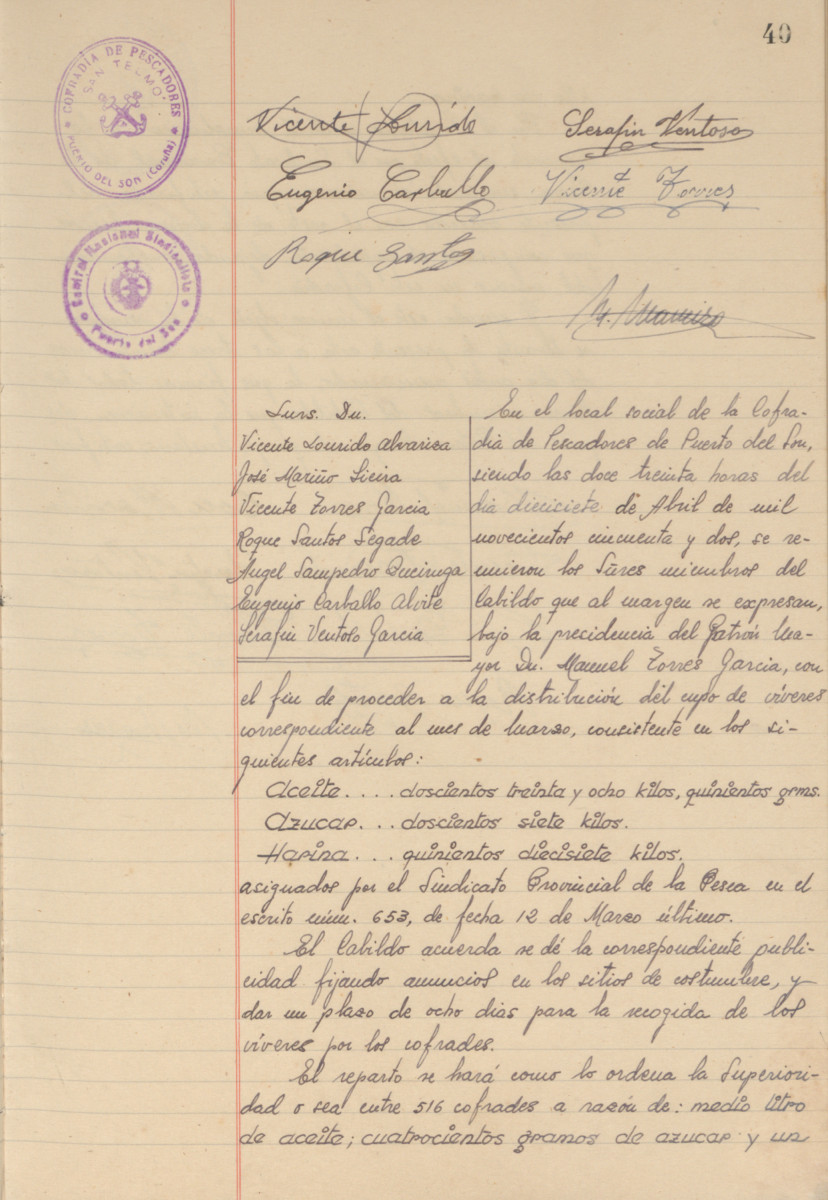 40
COFRADÍA DE PESCADORES
"SAN TELMO"
PUERTO DEL SON (Coruña)
Vicente Lourido
Serafin Ventoso
Eugenio Carballo
Vicente Torres
Roque Santos
Central Nacional Sindicalista
Puerto del Son
Sres. Dn.
Vicente Lourido Alvariza
José Mariño Sieira
Vicente Torres Garcia
Roque Santos Segade
Ángel Sampedro Queiruga
Eugenio Carballo Alvite
Serafin Ventoso Garcia
En el local social de la Cofra-
dia de Pescadores de Puerto del Son,
siendo las doce treinta horas del
dia diecisiete de Abril de mil
novecientos cincuenta y dos, se re-
unieron los Sñres miembros del
Cabildo que al margen se expresan,
bajo la precidencia del Patrón Ma-
yor Dn. Manuel Torres Garcia, con
el fin de proceder a la distribución del cupo de víveres
correspondiente al mes de Marzo, consistente en los si-
guientes artículos:
Aceite.... doscientos treinta y ocho kilos, quinientos grms.
Azucar... doscientos siete kilos.
Harina... quinientos diecisiete kilos.
asignados por el Sindicato Provincial de la Pesca en el
escrito núm. 653, de fecha 12 de Marzo último.
El Cabildo acuerda se dé la correspondiente publi-
cidad fijando anuncios en los sitios de costumbre, y
dar un plazo de ocho dias para la recogida de los
víveres por los cofrades.
El reparto se hará como lo ordena la Superiori-
dad o sea entre 516 cofrades a razón de: medio litro
de aceite; cuatrocientos gramos de azucar y un